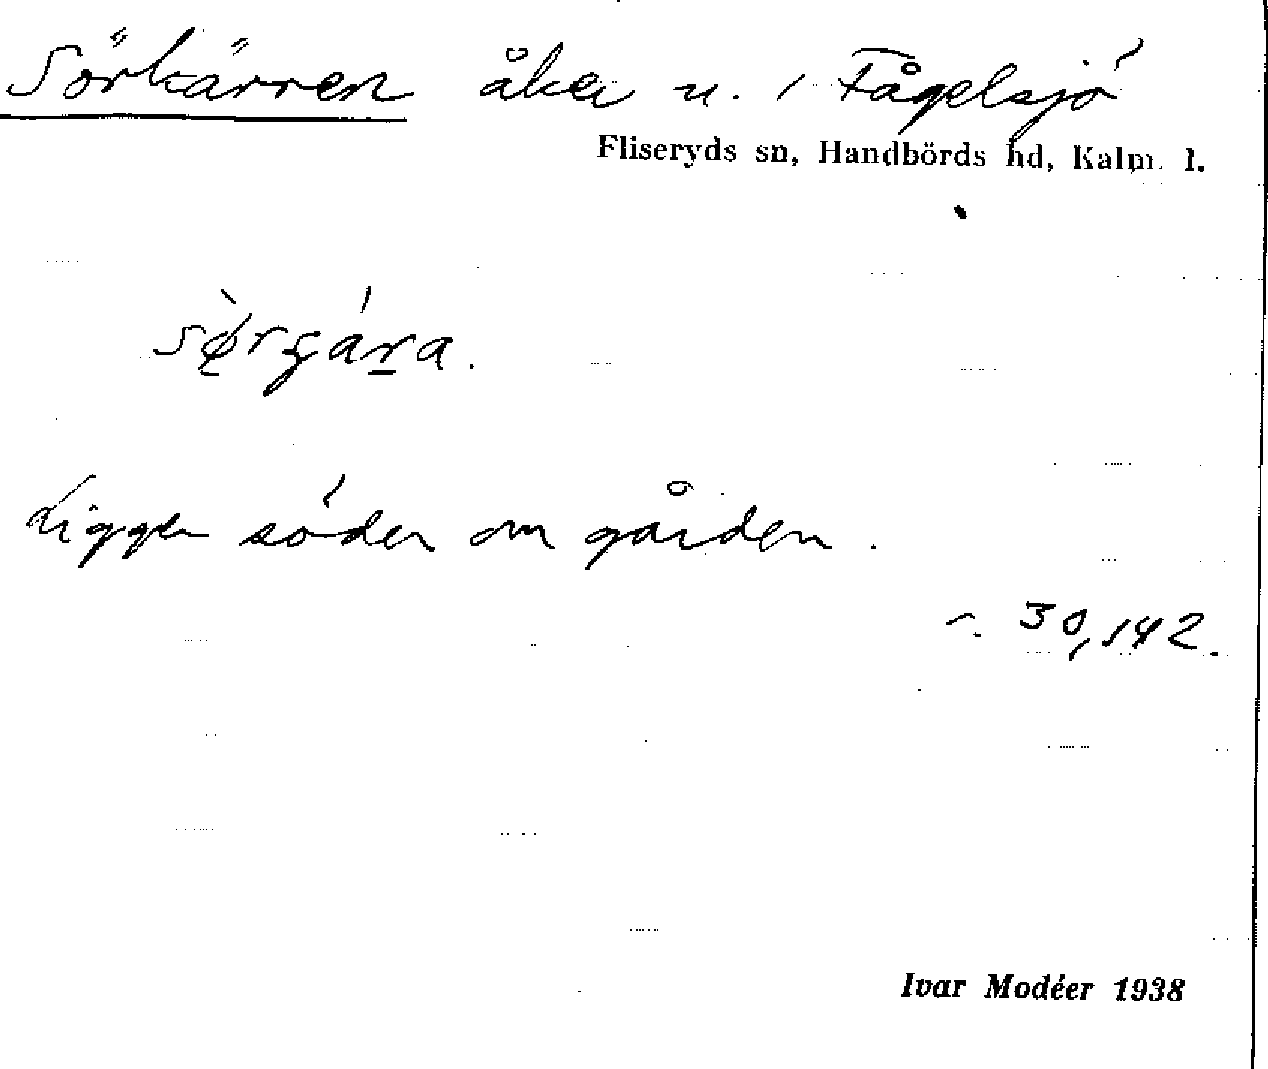 Sörkärren åker u. / Fågelsjö
Fliseryds sn, Handbörds hd, Kalm. l.
Ligger söder om gården.
30,142.
Ivar Modéer 1938